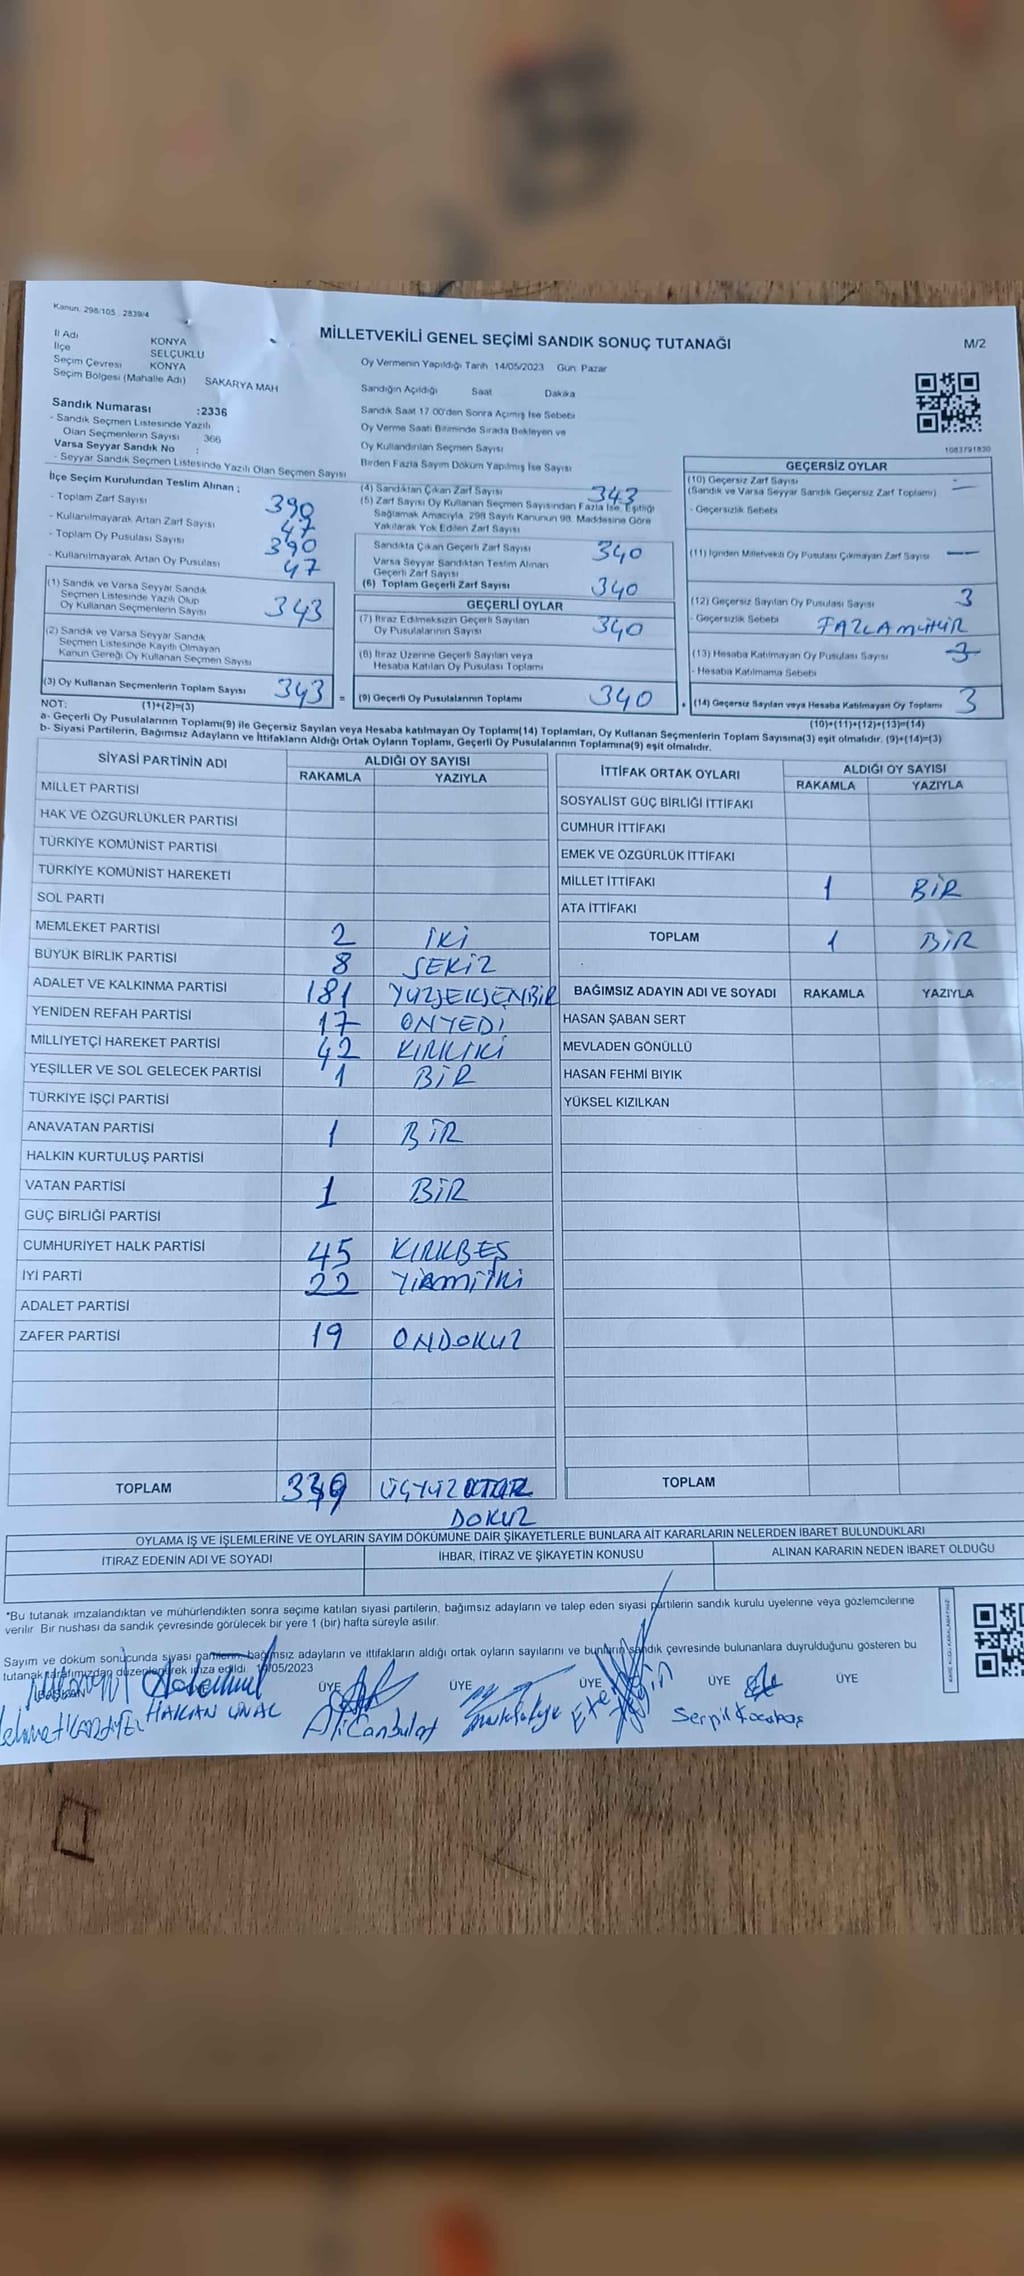 Kanun: 298/105 2839/4
MİLLETVEKİLİ GENEL SEÇİMİ SANDIK SONUÇ TUTANAĞI
M/2
İl Adı KONYA
İlçe SELÇUKLU
Seçim Çevresi KONYA
Seçim Bölgesi (Mahalle Adı) SAKARYA MAH
Sandık Numarası :2336
- Sandık Seçmen Listesinde Yazılı
Olan Seçmenlerin Sayısı 366
Varsa Seyyar Sandık No :
- Seyyar Sandık Seçmen Listesinde Yazılı Olan Seçmen Sayısı
Oy Vermenin Yapıldığı Tarih 14/05/2023 Gün Pazar
Sandığın Açıldığı Saat Dakika
Sandık Saat 17.00'den Sonra Açılmış İse Sebebi
Oy Verme Saati Bitiminde Sırada Bekleyen ve
Oy Kullandırılan Seçmen Sayısı
Birden Fazla Sayım Döküm Yapılmış İse Sayısı
1083791830
İlçe Seçim Kurulundan Teslim Alınan ;
- Toplam Zarf Sayısı 390
- Kullanılmayarak Artan Zarf Sayısı 47
- Toplam Oy Pusulası Sayısı 390
- Kullanılmayarak Artan Oy Pusulası 47
(1) Sandık ve Varsa Seyyar Sandık
Seçmen Listesinde Yazılı Olup
Oy Kullanan Seçmenlerin Sayısı 343
(2) Sandık ve Varsa Seyyar Sandık
Seçmen Listesinde Kayıtlı Olmayan
Kanun Gereği Oy Kullanan Seçmen Sayısı
(3) Oy Kullanan Seçmenlerin Toplam Sayısı 343 =
(4) Sandıktan Çıkan Zarf Sayısı 343
(5) Zarf Sayısı Oy Kullanan Seçmen Sayısından Fazla İse, Eşitliği
Sağlamak Amacıyla, 298 Sayılı Kanunun 98. Maddesine Göre
Yakılarak Yok Edilen Zarf Sayısı
Sandıkta Çıkan Geçerli Zarf Sayısı 340
Varsa Seyyar Sandıktan Teslim Alınan
Geçerli Zarf Sayısı
(6) Toplam Geçerli Zarf Sayısı 340
GEÇERLİ OYLAR
(7) İtiraz Edilmeksizin Geçerli Sayılan
Oy Pusulalarının Sayısı 340
(8) İtiraz Üzerine Geçerli Sayılan veya
Hesaba Katılan Oy Pusulası Toplamı
(9) Geçerli Oy Pusulalarının Toplamı 340 +
GEÇERSİZ OYLAR
(10) Geçersiz Zarf Sayısı
(Sandık ve Varsa Seyyar Sandık Geçersiz Zarf Toplamı) —
- Geçersizlik Sebebi
(11) İçinden Milletvekili Oy Pusulası Çıkmayan Zarf Sayısı —
(12) Geçersiz Sayılan Oy Pusulası Sayısı 3
- Geçersizlik Sebebi FAZLA MÜHÜR
(13) Hesaba Katılmayan Oy Pusulası Sayısı
- Hesaba Katılmama Sebebi
(14) Geçersiz Sayılan veya Hesaba Katılmayan Oy Toplamı 3
NOT: (1)+(2)=(3) (10)+(11)+(12)+(13)=(14)
a- Geçerli Oy Pusulalarının Toplamı(9) ile Geçersiz Sayılan veya Hesaba katılmayan Oy Toplamı(14) Toplamları, Oy Kullanan Seçmenlerin Toplam Sayısına(3) eşit olmalıdır. (9)+(14)=(3)
b- Siyasi Partilerin, Bağımsız Adayların ve İttifakların Aldığı Ortak Oyların Toplamı, Geçerli Oy Pusulalarının Toplamına(9) eşit olmalıdır.
SİYASİ PARTİNİN ADI ALDIĞI OY SAYISI
RAKAMLA YAZIYLA
MİLLET PARTİSİ
HAK VE ÖZGÜRLÜKLER PARTİSİ
TÜRKİYE KOMÜNİST PARTİSİ
TÜRKİYE KOMÜNİST HAREKETİ
SOL PARTİ
MEMLEKET PARTİSİ 2 İKİ
BÜYÜK BİRLİK PARTİSİ 8 SEKİZ
ADALET VE KALKINMA PARTİSİ 181 YÜZSEKSENBİR
YENİDEN REFAH PARTİSİ 17 ONYEDİ
MİLLİYETÇİ HAREKET PARTİSİ 42 KIRKİKİ
YEŞİLLER VE SOL GELECEK PARTİSİ 1 BİR
TÜRKİYE İŞÇİ PARTİSİ
ANAVATAN PARTİSİ 1 BİR
HALKIN KURTULUŞ PARTİSİ
VATAN PARTİSİ 1 BİR
GÜÇ BİRLİĞİ PARTİSİ
CUMHURİYET HALK PARTİSİ 45 KIRKBEŞ
İYİ PARTİ 22 YİRMİİKİ
ADALET PARTİSİ
ZAFER PARTİSİ 19 ONDOKUZ
TOPLAM 339 ÜÇYÜZ OTUZ
DOKUZ
İTTİFAK ORTAK OYLARI ALDIĞI OY SAYISI
RAKAMLA YAZIYLA
SOSYALİST GÜÇ BİRLİĞİ İTTİFAKI
CUMHUR İTTİFAKI
EMEK VE ÖZGÜRLÜK İTTİFAKI
MİLLET İTTİFAKI 1 BİR
ATA İTTİFAKI
TOPLAM 1 BİR
BAĞIMSIZ ADAYIN ADI VE SOYADI RAKAMLA YAZIYLA
HASAN ŞABAN SERT
MEVLADEN GÖNÜLLÜ
HASAN FEHMİ BIYIK
YÜKSEL KIZILKAN
TOPLAM
OYLAMA İŞ VE İŞLEMLERİNE VE OYLARIN SAYIM DÖKÜMÜNE DAİR ŞİKAYETLERLE BUNLARA AİT KARARLARIN NELERDEN İBARET BULUNDUKLARI
İTİRAZ EDENİN ADI VE SOYADI İHBAR, İTİRAZ VE ŞİKAYETİN KONUSU ALINAN KARARIN NEDEN İBARET OLDUĞU
*Bu tutanak imzalandıktan ve mühürlendikten sonra seçime katılan siyasi partilerin, bağımsız adayların ve talep eden siyasi partilerin sandık kurulu üyelerine veya gözlemcilerine
verilir. Bir nushası da sandık çevresinde görülecek bir yere 1 (bir) hafta süreyle asılır.
Sayım ve döküm sonucunda siyasi partilerin, bağımsız adayların ve ittifakların aldığı ortak oyların sayılarını ve bunların sandık çevresinde bulunanlara duyrulduğunu gösteren bu
tutanak tarafımızdan düzenlenerek imza edildi. /05/2023
BAŞKAN ÜYE ÜYE ÜYE ÜYE ÜYE
HAKAN ÜNAL Ali Canbulat Serpil